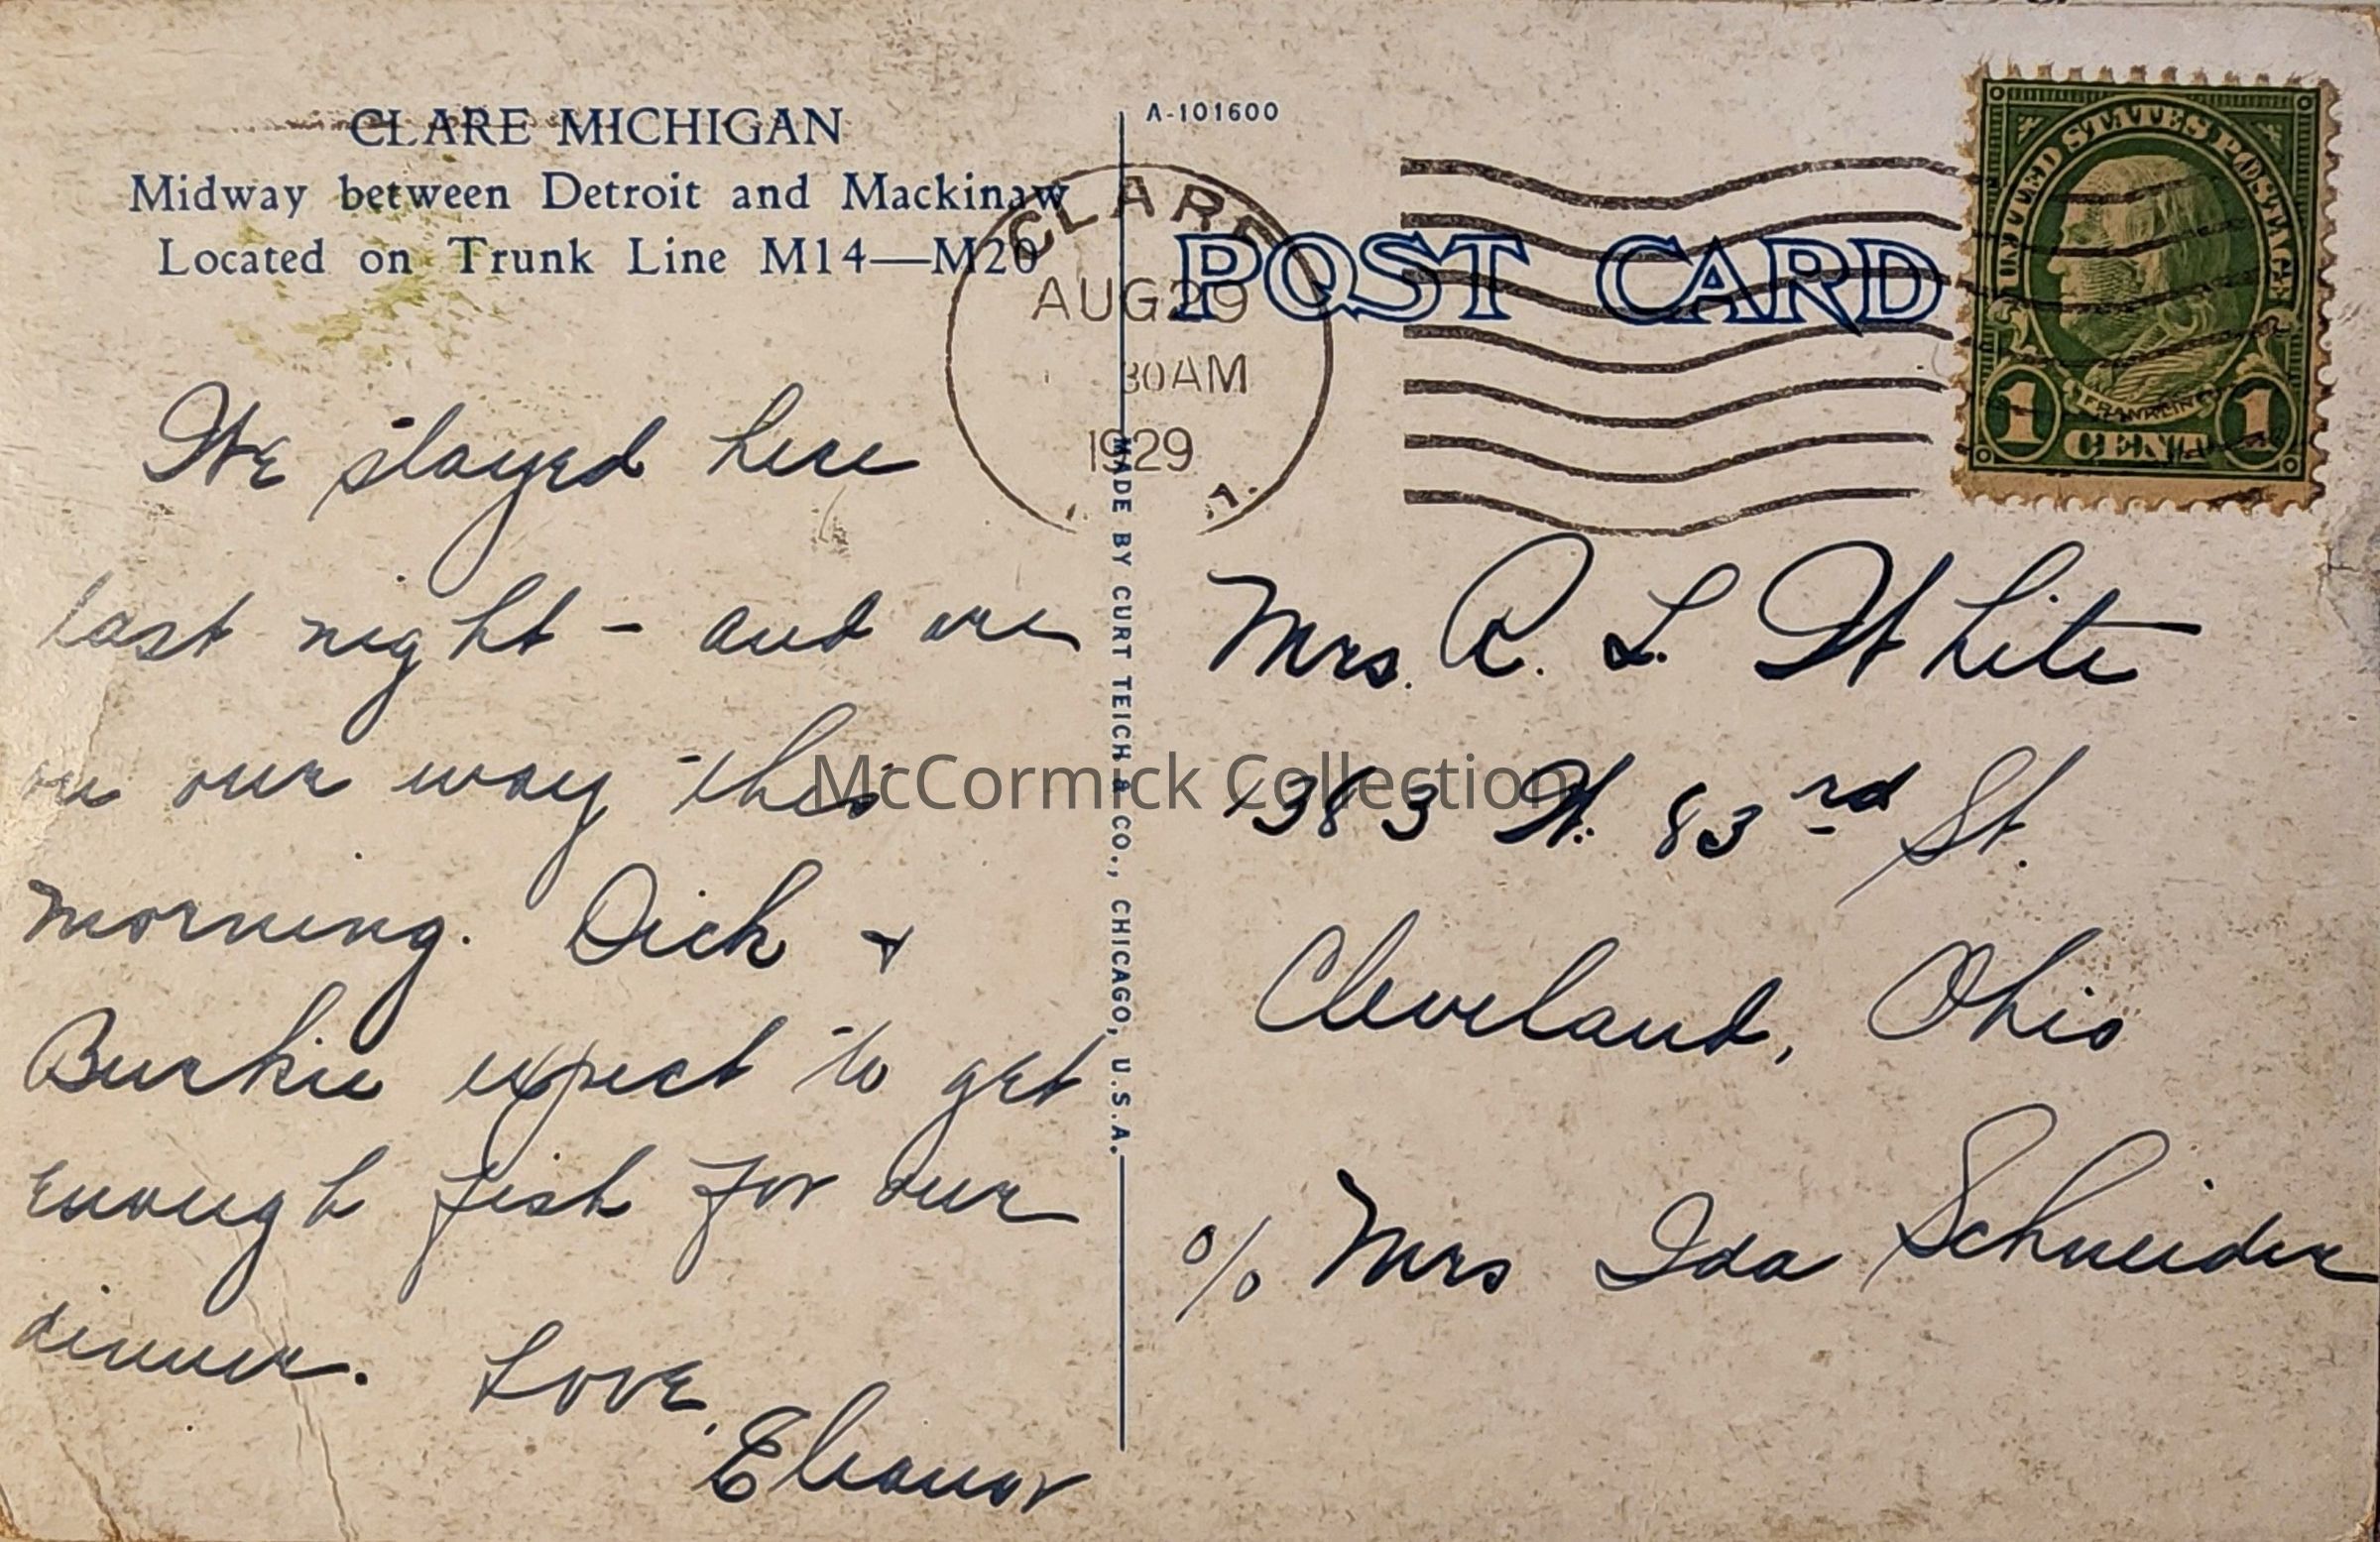 CLARE MICHIGAN
Midway between Detroit and Mackinaw
Located on Trunk Line M14—M20
We stayed here
last night - and are
on our way this
morning. Dick +
Burkie expect to get
enough fish for our
dinner. Love,
Eleanor
A-101600
POST CARD
CLARE
AUG 29
30AM
1929
MADE BY CURT TEICH & CO., CHICAGO, U.S.A.
UNITED STATES POSTAGE
FRANKLIN
1 CENT 1
Mrs. R. L. White
1383 W. 83rd St.
Cleveland, Ohio
c/o Mrs Ida Schneider
McCormick Collection